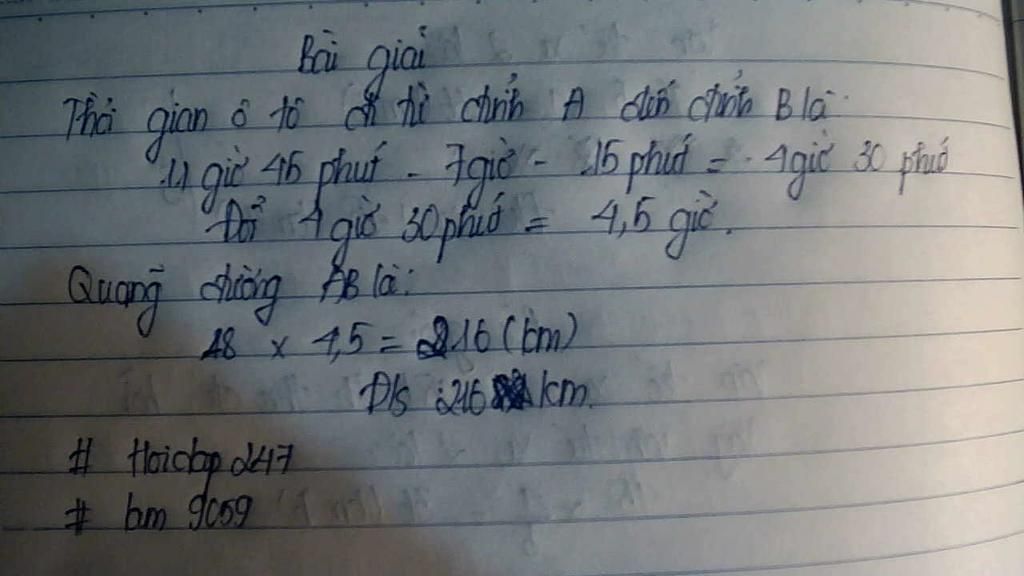 Bài giải
Thời gian ô tô đi từ tỉnh A đến tỉnh B là:
11 giờ 45 phút - 7 giờ - 15 phút = 4 giờ 30 phút
Đổi 4 giờ 30 phút = 4,5 giờ.
Quãng đường AB là:
48 x 4,5 = 216 (km)
Đ/s : 216 km.
# Hoidap 247
# bm 9059